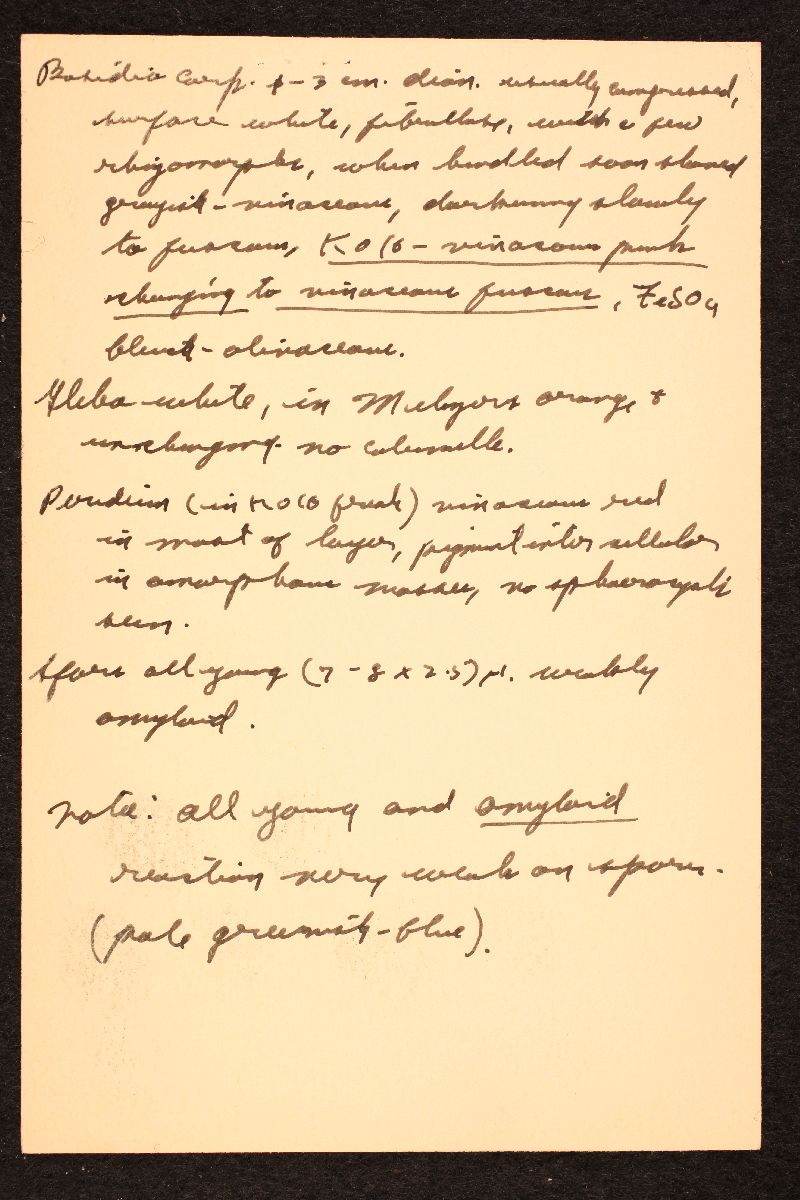 Basidio carp. 1-3 cm. diam. usually compressed,
surface white, fibrillose, with a few
rhizomorphs, when handled soon stained
grayish-vinaceous, darkening slowly
to fuscous, KOH- vinaceous pink
changing to vinaceous fuscous, FeSO4
bluish-olivaceous.
Gleba white, in Melzers orange &
unchanging. no columella.
Peridium (in KOH fresh) vinaceous red
in most of layer, pigment inter cellular
in amorphous masses, no sphaerocysts
seen.
Spores all young (7-8 x 2.5) µ. weakly
amyloid.
note: all young and amyloid
reaction very weak on spores.
(pale greenish-blue).